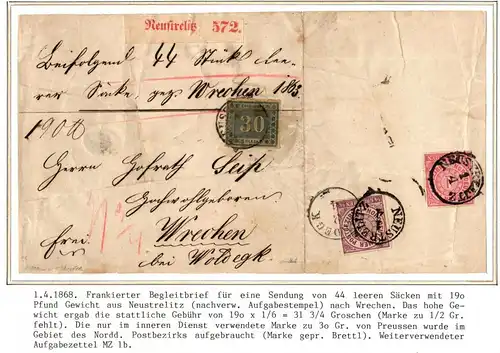 Neustrelitz 572.
Beifolgend 44 Stück lee-
rer Säcke, gez. Wrechen 1863
190 ℔
30
Herrn Hofrath Seip
Hochwohlgeboren
Frei.
Wrechen
bei Woldegk.
NEUSTRELITZ
1.4.1868. Frankierter Begleitbrief für eine Sendung von 44 leeren Säcken mit 19o
Pfund Gewicht aus Neustrelitz (nachverw. Aufgabestempel) nach Wrechen. Das hohe Ge-
wicht ergab die stattliche Gebühr von 19o x 1/6 = 31 3/4 Groschen (Marke zu 1/2 Gr.
fehlt). Die nur im inneren Dienst verwendete Marke zu 3o Gr. von Preussen wurde im
Gebiet des Nordd. Postbezirks aufgebraucht (Marke gepr. Brettl). Weiterverwendeter
Aufgabezettel MZ 1b.